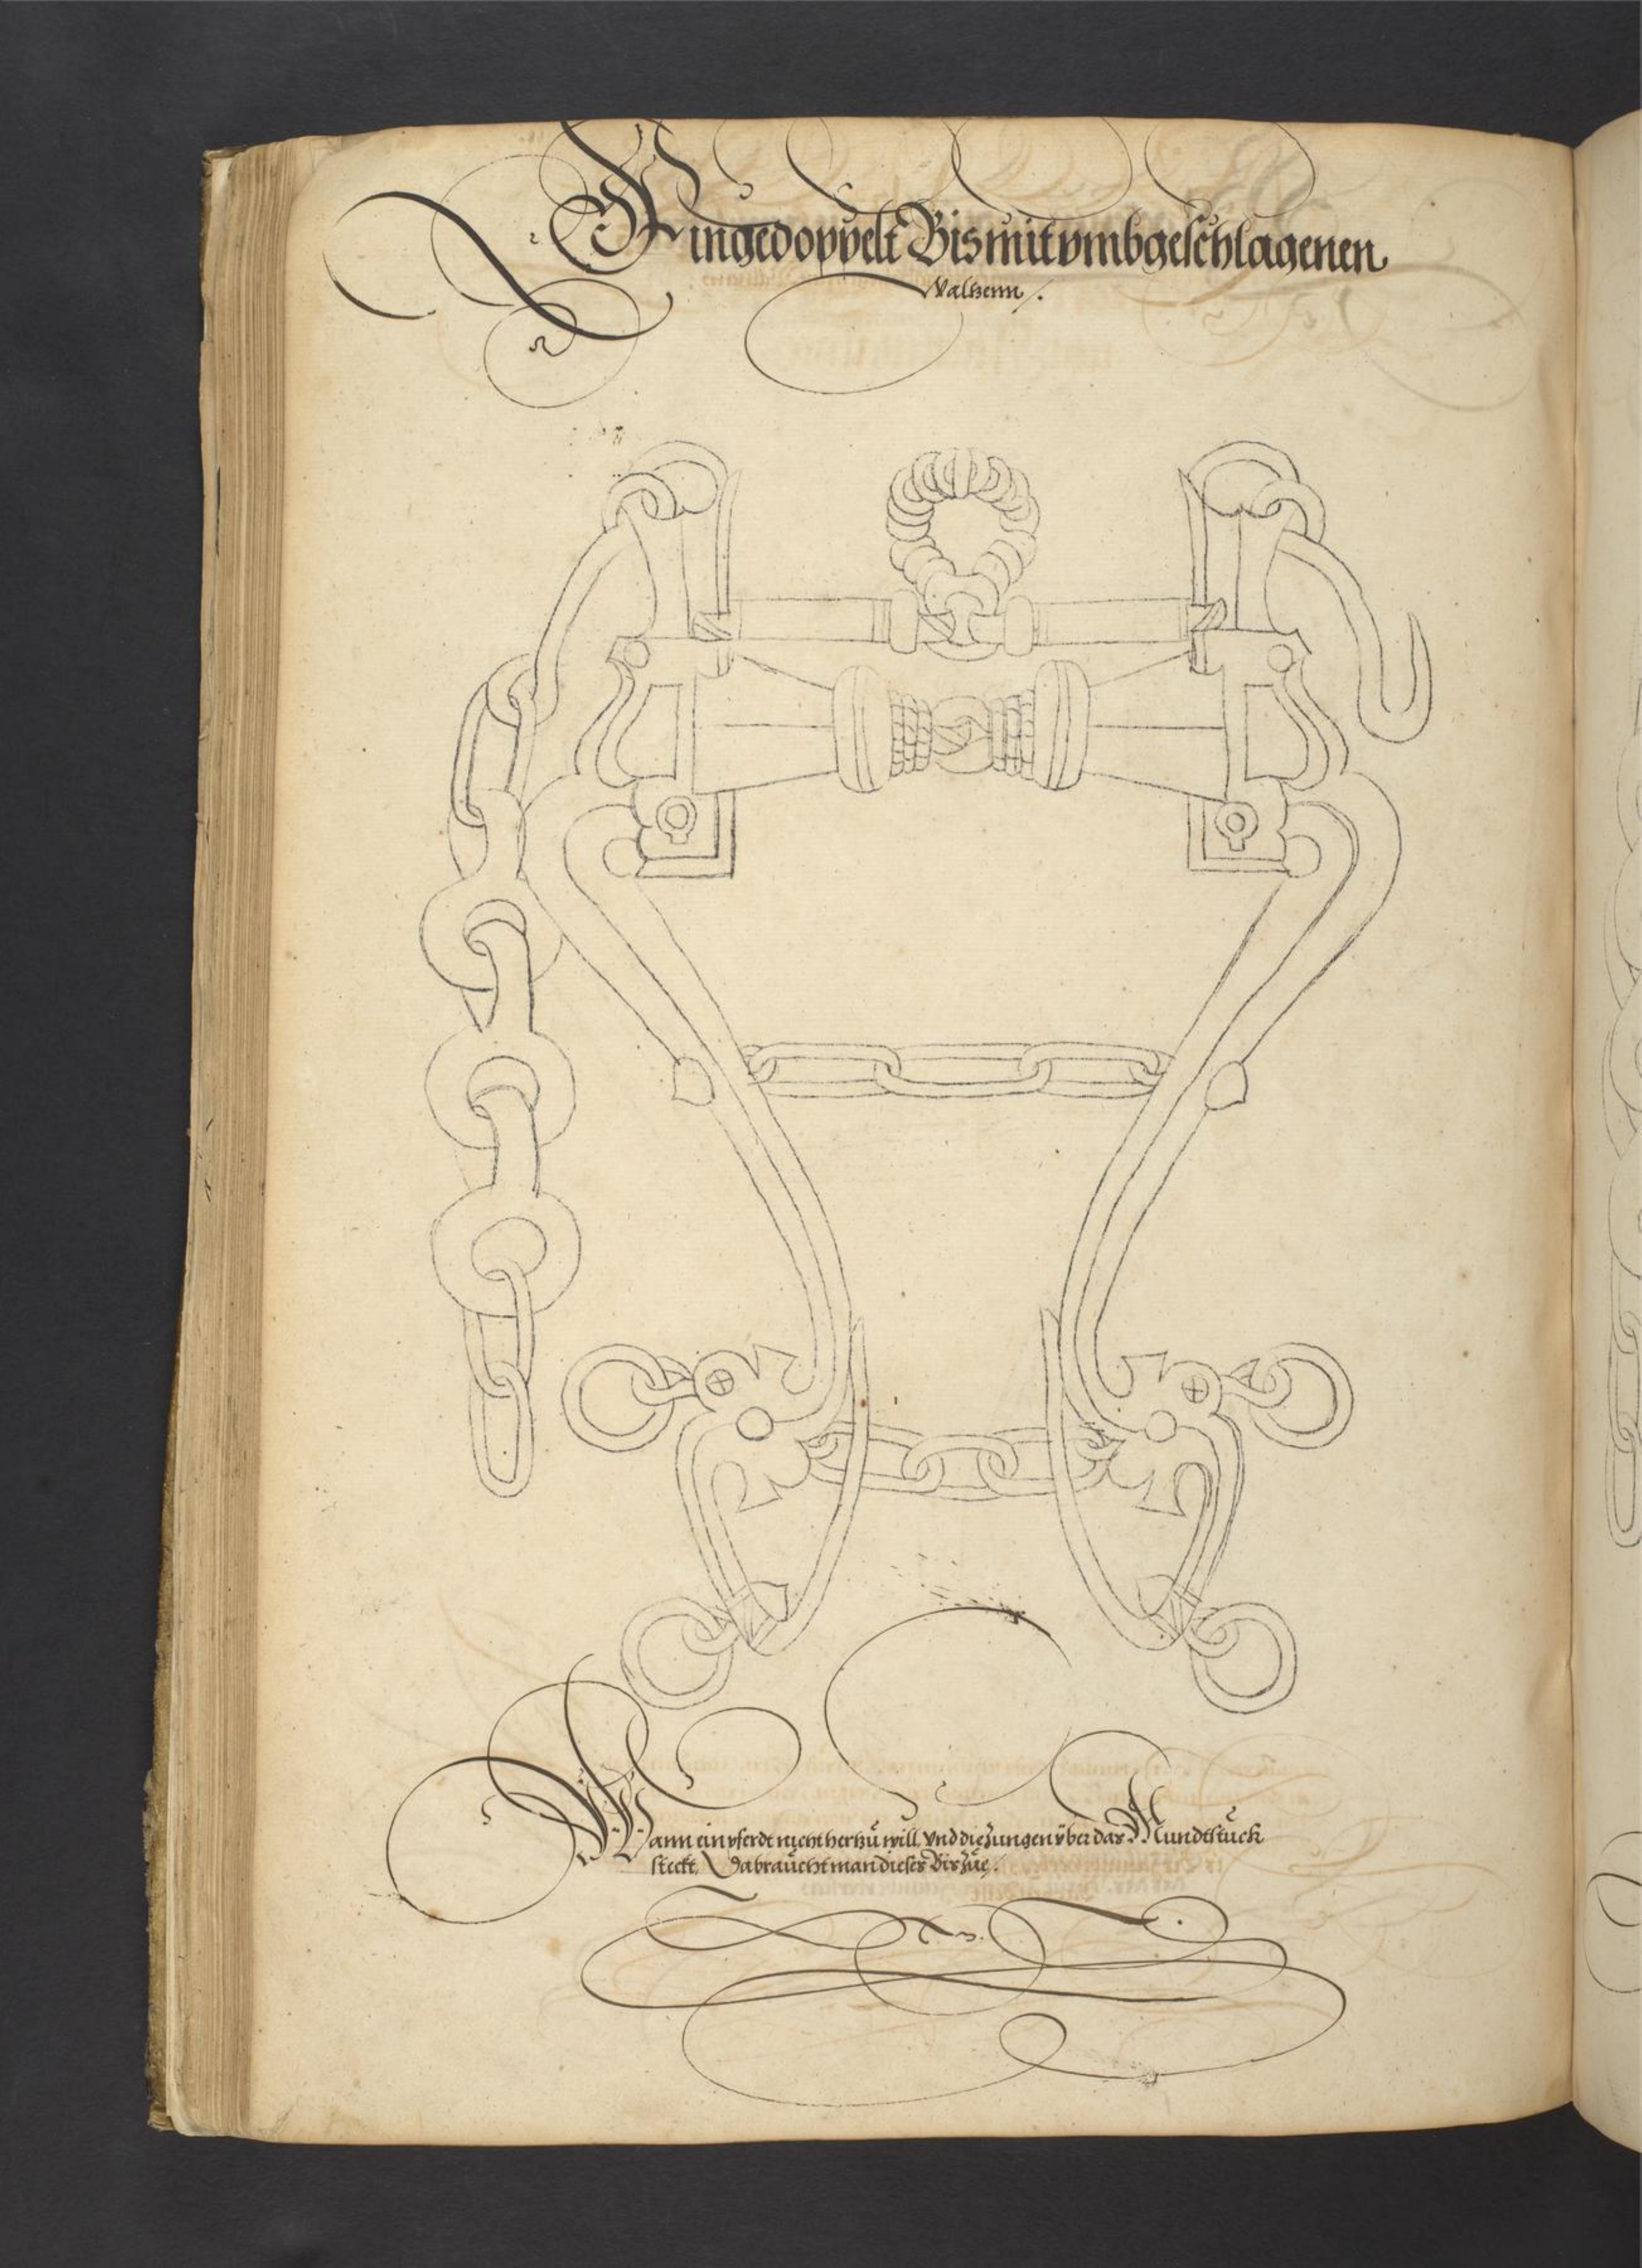 Ein gedoppelt Bis mit vmbgeschlagenen
Valzenn.
Wann ein pferdt nicht hertzu will, vnd die Zungen über das Mundtstuck
steckt, Da braucht man dieses Bis Zue.